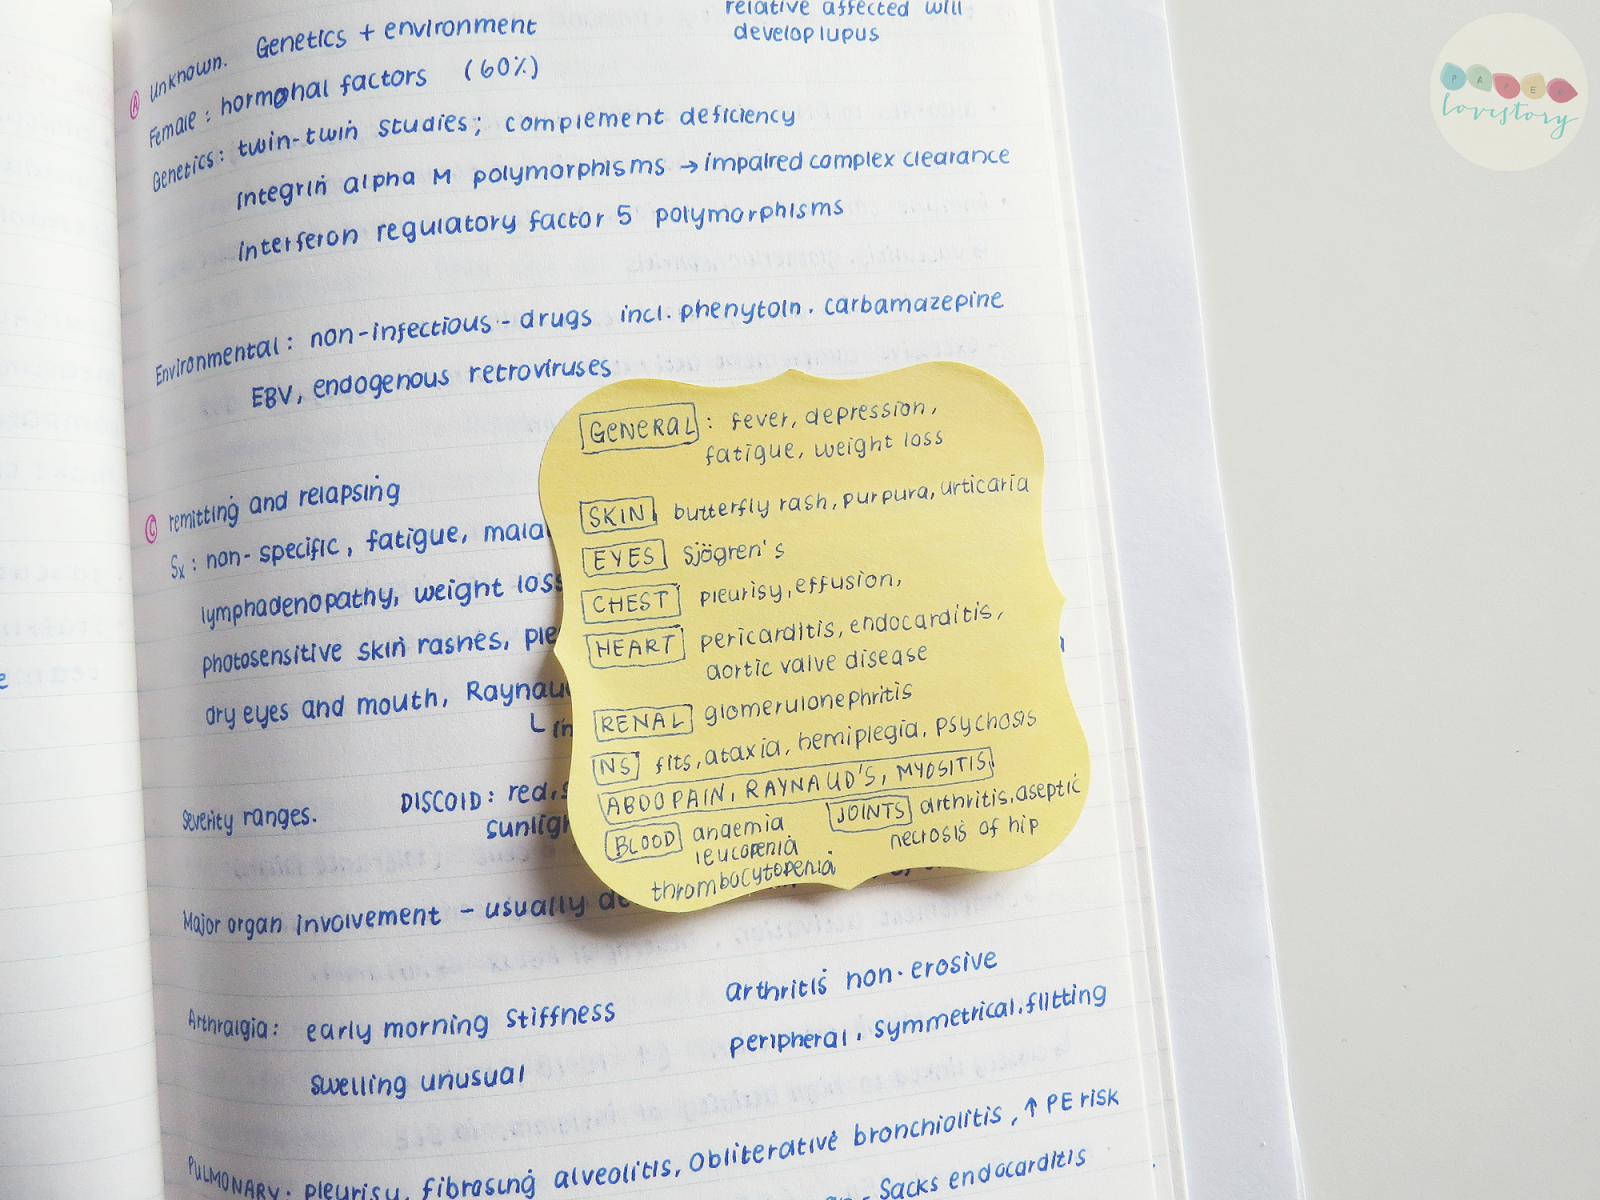 relative affected will
develop lupus
Ⓐ Unknown. Genetics + environment
Female : hormonal factors (60%)
Genetics : twin-twin studies; complement deficiency
integrin alpha M polymorphisms → impaired complex clearance
interferon regulatory factor 5 polymorphisms
Environmental : non-infectious - drugs incl. phenytoin. carbamazepine
EBV, endogenous retroviruses
Ⓒ remitting and relapsing
Sx : non-specific, fatigue, malai
lymphadenopathy, weight loss
photosensitive skin rashes, ple
dry eyes and mouth, Raynau
Severity ranges. DISCOID : red, s
sunligh
Major organ involvement - usually de
Arthralgia : early morning stiffness
swelling unusual
arthritis non-erosive
peripheral, symmetrical. flitting
PULMONARY. pleurisy, fibrosing alveolitis, obliterative bronchiolitis, ↑ PE risk
- Sacks endocarditis
GENERAL : fever, depression,
fatigue, weight loss
SKIN butterfly rash, purpura, urticaria
EYES Sjögren's
CHEST pleurisy, effusion,
HEART pericarditis, endocarditis,
aortic valve disease
RENAL glomerulonephritis
NS fits, ataxia, hemiplegia, psychosis
ABDO PAIN, RAYNAUD'S, MYOSITIS
BLOOD anaemia
leucopenia
thrombocytopenia
JOINTS arthritis, aseptic
necrosis of hip
PAPER
lovestory